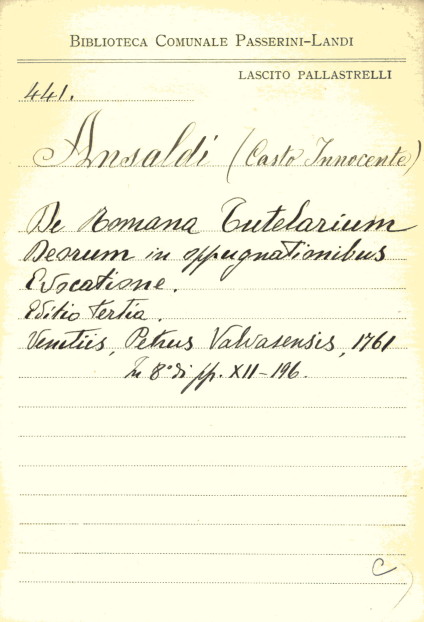 BIBLIOTECA COMUNALE PASSERINI-LANDI
LASCITO PALLASTRELLI
441.
Ansaldi (Casto Innocente)
De Romana Tutelarium
Deorum in oppugnationibus
Evocatione.
Editio tertia.
Venetiis, Petrus Valvasensis, 1761
In 8° di pp. XII-196.
C